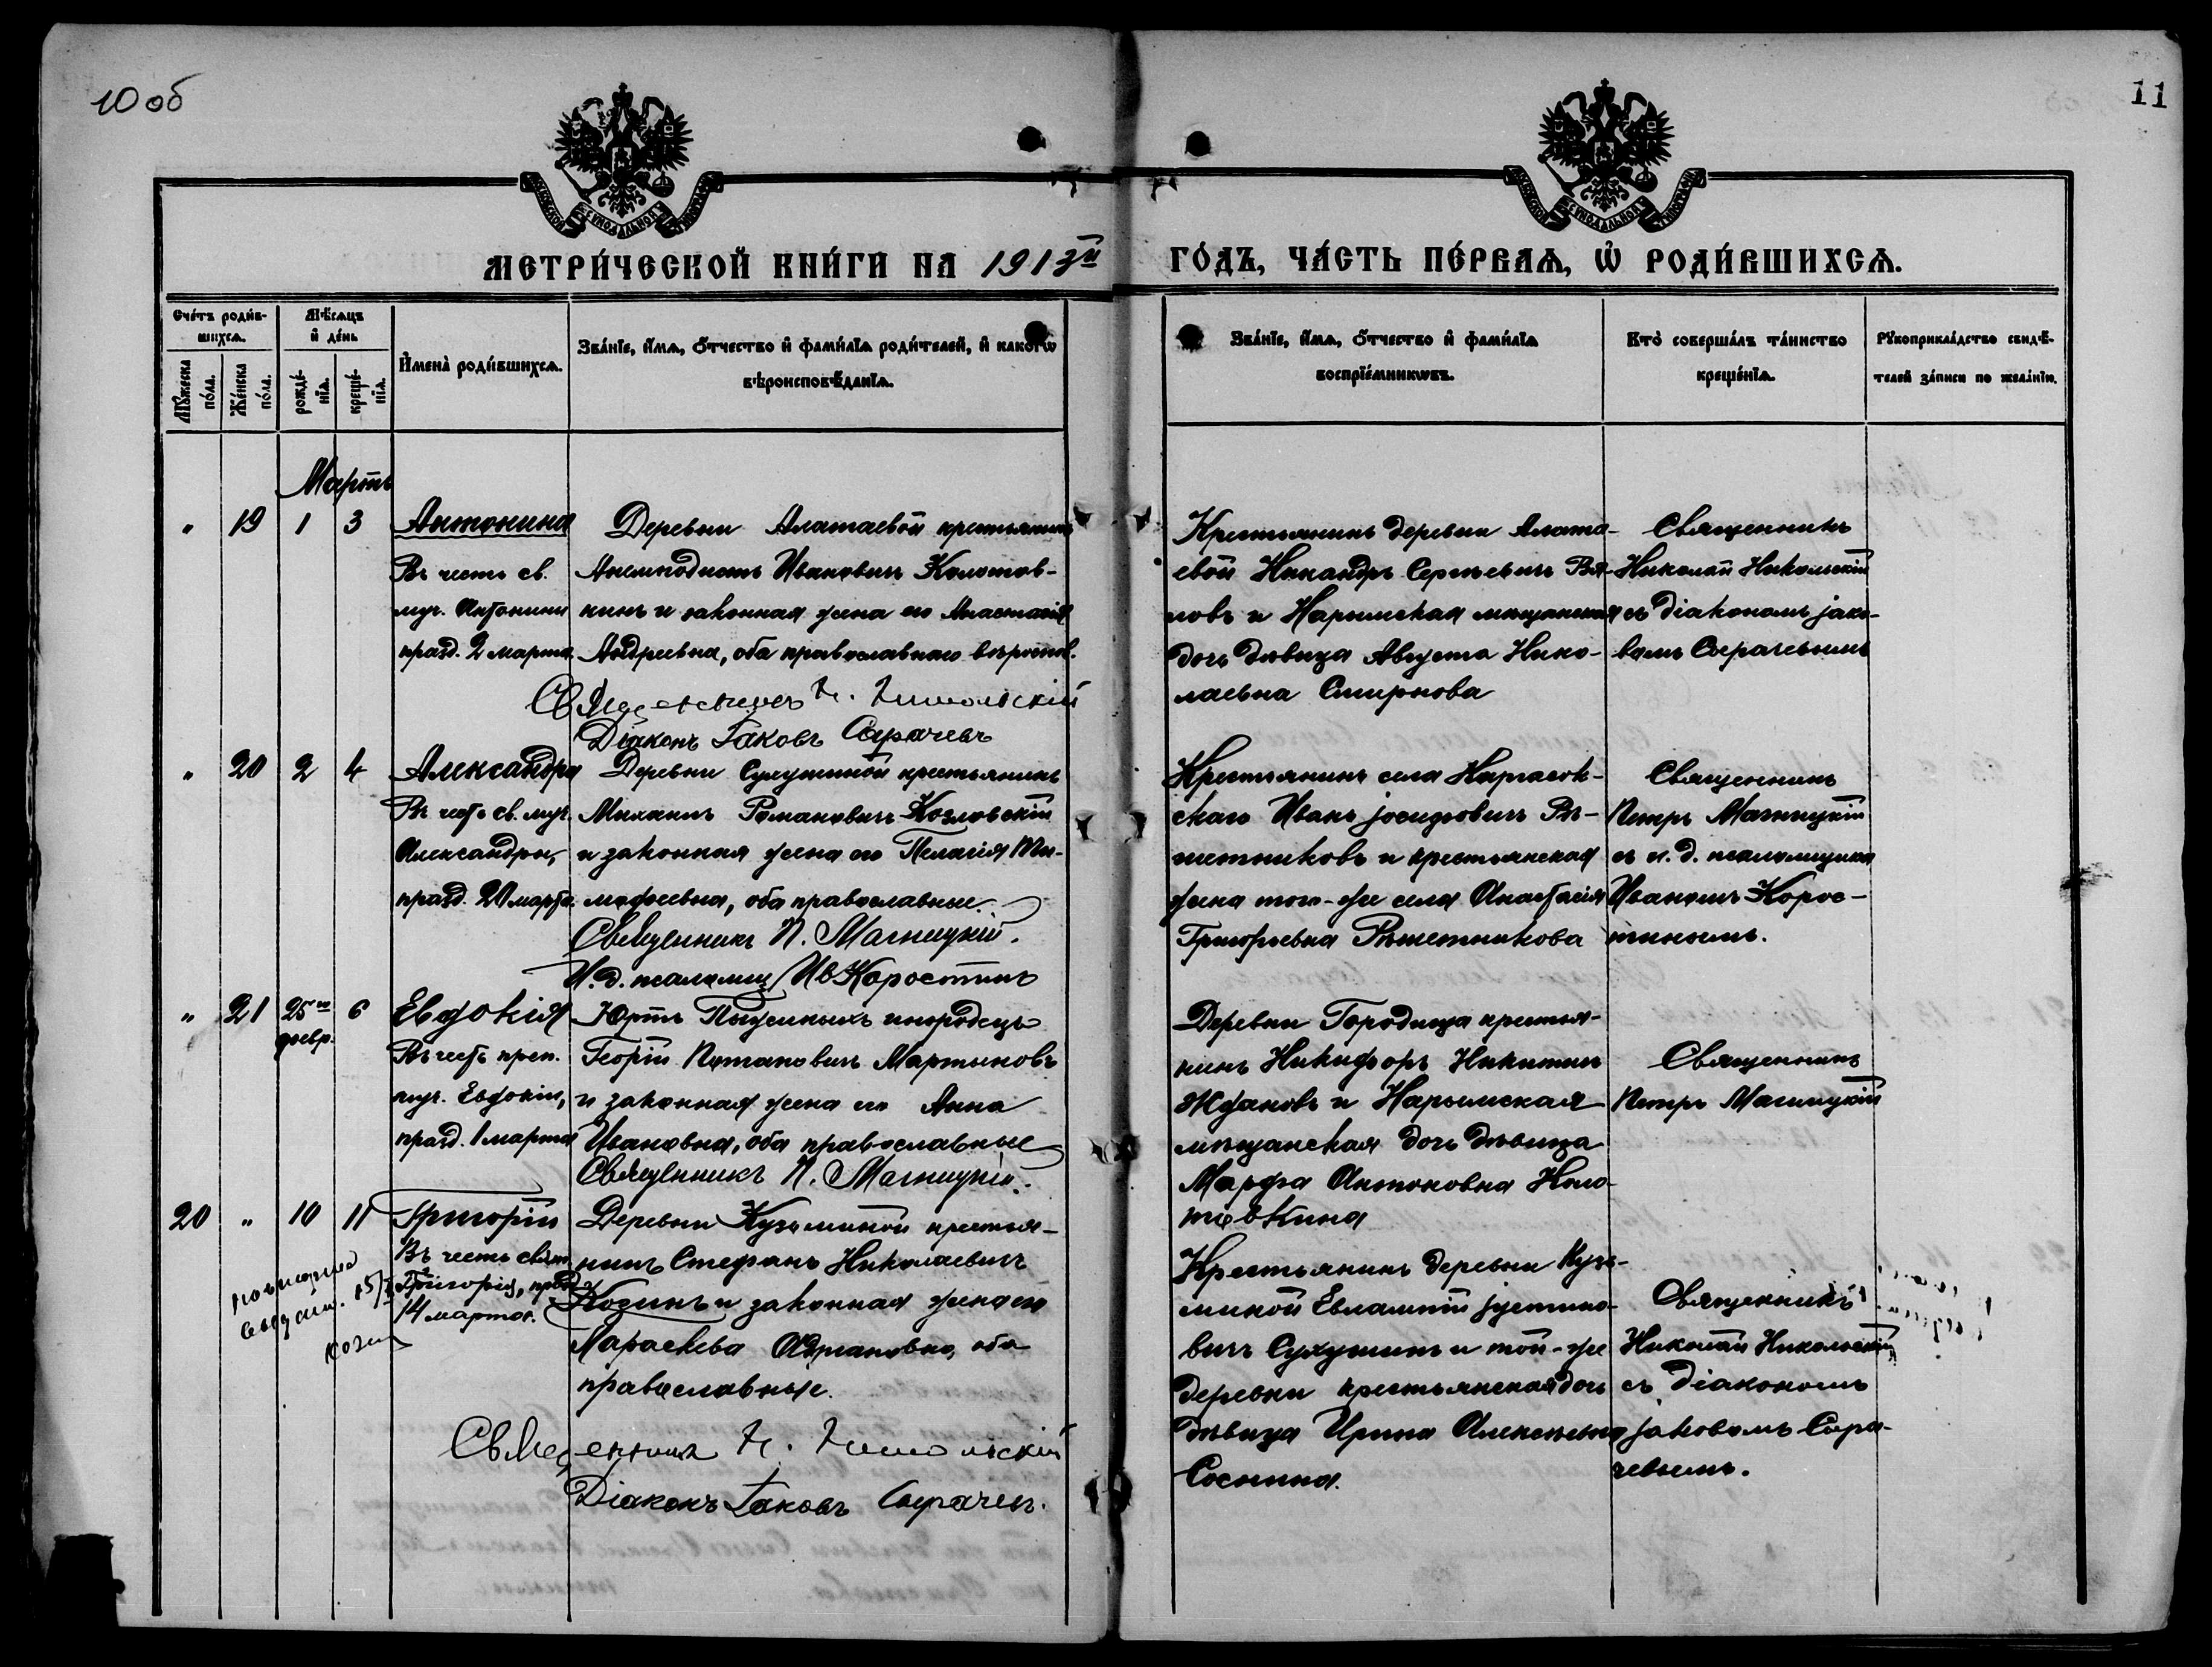 10 об
11
СѴНОДАЛЬНОЙ
СѴНОДАЛЬНОЙ
МЕТРИ́ЧЕСКОЙ КНИ́ГИ НА 1913й
ГО́ДЪ, ЧА́СТЬ ПЕ́РВАѦ, Ѡ҆ РОДИ́ВШИХСѦ.
Сче́тъ роди́в-
шихсѧ.
Мѣ́сѧцъ
и҆ де́нь
Мꙋ́жеска
по́ла.
Же́нска
по́ла.
рожде́-
нїѧ.
креще́-
нїѧ.
И҆мена̀ роди́вшихсѧ.
Зва́нїе, и҆́мѧ, ѻ҆́тчество и҆ фамѝлїѧ роди́телей, и҆ како́гѡ
вѣроисповѣ́данїѧ.
Зва́нїе, и҆́мѧ, ѻ҆́тчество и҆ фамѝлїѧ
воспрїе́мникѡвъ.
Кто̀ соверша́лъ та́инство
креще́нїѧ.
Рꙋкоприкла́дство свидѣ́-
телей за́писи по жела́нїю.
Мартъ
" 19 1 3 Антонина
Въ честь св.
муч. Антонины
празд. 2 марта
Деревни Алатаевой крестьянинъ
Анемподистъ Ивановичъ Колотов-
кинъ и законная жена его Анастасія
Андреевна, оба православнаго вѣроиспов.
Священникъ Н. Никольскій
Діаконъ Іаковъ Сырачевъ
Крестьянинъ деревни Алата-
евой Никандръ Сергѣевичъ Вя-
ловъ и Нарымская мѣщанская
дочь дѣвица Августа Нико-
лаевна Смирнова
Священникъ
Николай Никольскій
съ діакономъ Іако-
вомъ Сырачевымъ
" 20 2 4 Александра
Въ честь св. муч.
Александры,
празд. 20 марта
Деревни Сухушиной крестьянинъ
Михаилъ Романовичъ Козловскій
и законная жена его Пелагія Ти-
мофеевна, оба православные.
Священникъ П. Магницкій.
И. д. псаломщ. Ив Коростинъ
Крестьянинъ села Каргасок-
скаго Иванъ Іосифовичъ Рѣ-
шетниковъ и крестьянская
жена того-же села Анастасія
Григорьевна Рѣшетникова
Священникъ
Петръ Магницкій
съ и. д. псаломщика
Иваномъ Корос-
тинымъ.
" 21 25го 6 Евдокія
февр.
Въ честь преп.
муч. Евдокіи,
празд. 1 марта
Юртъ Пыжиныхъ инородецъ
Георгій Потаповичъ Мартыновъ
и законная жена его Анна
Ивановна, оба православные
Священникъ П. Магницкій.
Деревни Городища крестья-
нинъ Никифоръ Никитинъ
Ждановъ и Нарымская
мѣщанская дочь дѣвица
Марфа Антоновна Коло-
товкина
Священникъ
Петръ Магницкій
20 " 10 11 Григорій
Въ честь свят.
Григорія, празд.
14 марта.
Козин
Деревни Кузьминой крестья-
нинъ Стефанъ Николаевичъ
Козинъ и законная жена его
Параскева Адріановна, оба
православные.
Священникъ Н. Никольскій
Діаконъ Іаковъ Сырачевъ.
Крестьянинъ деревни Кузь-
миной Евлампій Іустино-
вичъ Сухушинъ и той-же
деревни крестьянская дочь
дѣвица Ирина Алексѣевна
Соснина.
Священникъ
Николай Никольскій
съ діакономъ
Іаковомъ Сыра-
чевымъ.